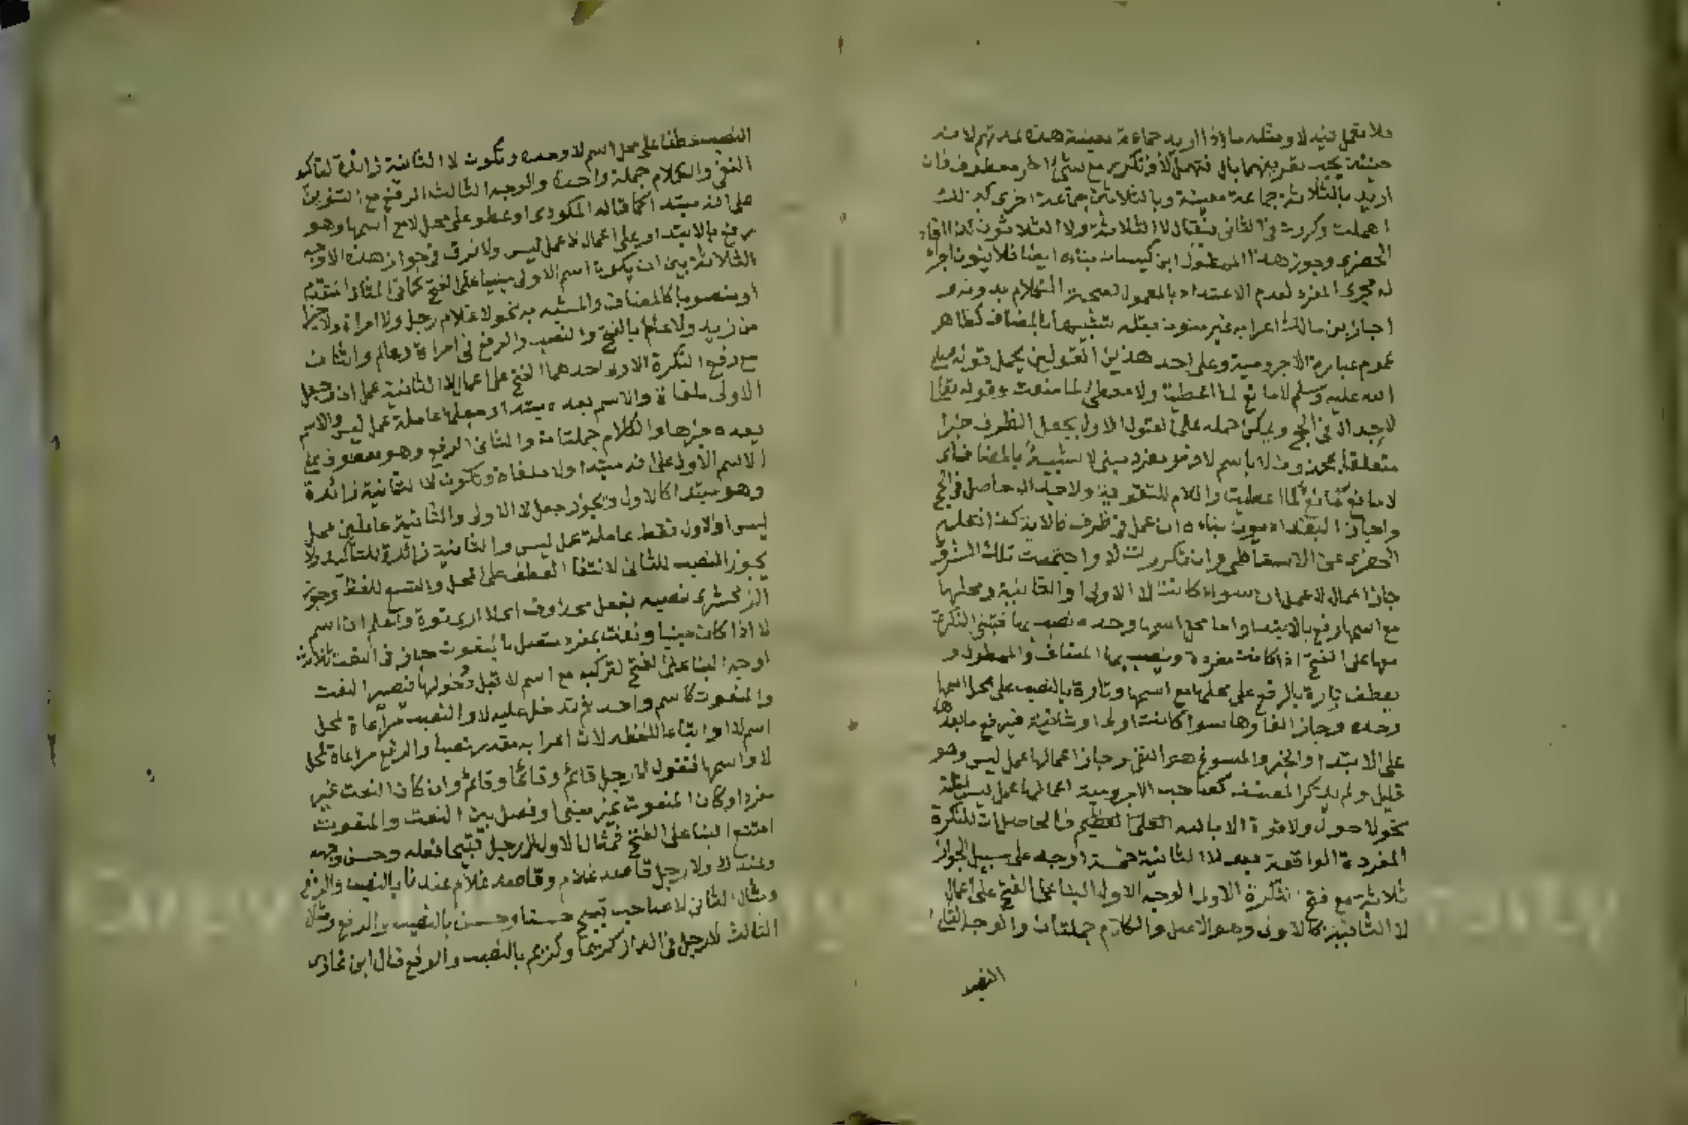 فلا تعمل فيه لا ومثله ما اذا اريد جماعة معينة هذه عدتهم لانه
حينئذ يجب تعريفهما بال فتهمل لا وتكرر مع شيء اخر معطوف فان
اريد بالثلاثة جماعة معينة وبالثلاثين جماعة اخرى كذلك
اهملت وكررت في الثاني فيقال لا الثلاثة ولا الثلاثون
وجوز هذا المعطوف ابن كيسان بناءه ايضا فلاثون اجراء
له مجرى المفرد لعدم الاعتداد بالمعمول لصحة الكلام بدونه و
اجاز ابن مالك اعرابه غير منون بقلة تشبيها بالمضاف كظاهر
عموم عبارة الاجرومية وعلى احد هذين القولين يحمل قوله صلى
الله عليه وسلم لا مانع لما اعطيت ولا معطي لما منعت وقوله تعالى
لا جدال في الحج ويمكن حمله على القول الاول بجعل الظرف خبرا
متعلقا بمحذوف لا باسم لا فهو مفرد مبني لا شبيه بالمضاف اي
لا مانع مانع لما اعطيت واللام للتقوية ولا جدال حاصل في الحج
واجاز البغداديون بناءه ان عمل في ظرف
وان تكررت لا واجتمعت تلك الشروط
جاز اعمال لا عمل ان سواء كانت لا الاولى او الثانية ومحلها
مع اسمها رفع بالابتداء واما محل اسمها وحده نصب بها فتبنى النكرة
معها على الفتح اذا كانت مفردة وينصب بها المضاف والمطول و
يعطف تارة بالرفع على محلها مع اسمها وتارة بالنصب على محل اسمها
وحده وجاز الغاؤها سواء كانت اولى او ثانية فيرفع ما بعدها
على الابتداء والخبر والمسوغ هو النفي وجاز اعمالها عمل ليس وهو
قليل ولم يذكر المصنف كصاحب الاجرومية اعمالها عمل ليس لقلته
نحو لا حول ولا قوة الا بالله العلي العظيم فالحاصل ان للنكرة
المفردة الواقعة بعد لا الثانية خمسة اوجه على سبيل الجواز
ثلاثة مع فتح النكرة الاولى الوجه الاول البناء على الفتح على اعمال
لا الثانية كالاولى وهو الاصل والكلام جملتان والوجه الثاني
النصب
النصب عطفا على محل اسم لا وحده وتكون لا الثانية زائدة لتاكيد
النفي والكلام جملة واحدة والوجه الثالث الرفع مع التنوين
على انه مبتدا كما قاله المكودي او عطف على محل لا مع اسمها وهو
رفع بالابتدا او على اعمال لا عمل ليس ولا فرق في جواز هذه الاوجه
الثلاثة بين ان يكون اسم الاولى مبنيا على الفتح كما في المثال المتقدم
او منصوبا كالمضاف والمشبه به نحو لا غلام رجل ولا امراة ولا خيرا
من زيد ولا عالم بالفتح والنصب والرفع في امراة وعالم واثنان
مع رفع النكرة الاولى احدهما الفتح على اعمال لا الثانية عمل ان وجعل
الاولى ملغاة والاسم بعدها مبتدا او جعلها عاملة عمل ليس والاسم
بعدها خبرها والكلام جملتان والثاني الرفع وهو معطوف على
الاسم الاول على انه مبتدا ولا ملغاة وتكون لا الثانية زائدة
وهو مبتدا كالاول ويجوز جعل لا الاولى والثانية عاملتين عمل
ليس او الاولى فقط عاملة عمل ليس والثانية زائدة للتاكيد ولا
يجوز النصب للثاني لانتفاء العطف على المحل والتبع للفظ وجوز
الزمخشري نصبه بفعل محذوف اي لا ارى قوة واعلم ان اسم
لا اذا كان مبنيا ونعت بمفرد متصل بالمنعوت جاز في النعت ثلاثة
اوجه البناء على الفتح لتركبه مع اسم لا قبل دخولها فصير النعت
والمنعوت كاسم واحد ثم تدخل عليه لا والنصب مراعاة لمحل
اسم لا او اتباعا للفظه لان اعرابه مقدر نصبا والرفع مراعاة لمحل
لا واسمها فتقول لا رجل قائم وقائما وقائم وان كان النعت غير
مفرد او كان المنعوت غير مبني او فصل بين النعت والمنعوت
امتنع البناء على الفتح فمثال الاول لا رجل قبيحا فعله وحسن وجهه
عندك ولا رجل قاصد غلام وقاصد غلام عندنا بالنصب والرفع
ومثال الثاني لا صاحب قبيح حسنا وحسن بالنصب والرفع ومثال
الثالث لا رجل في الدار كريما وكريم بالنصب والرفع قال ابن غازي